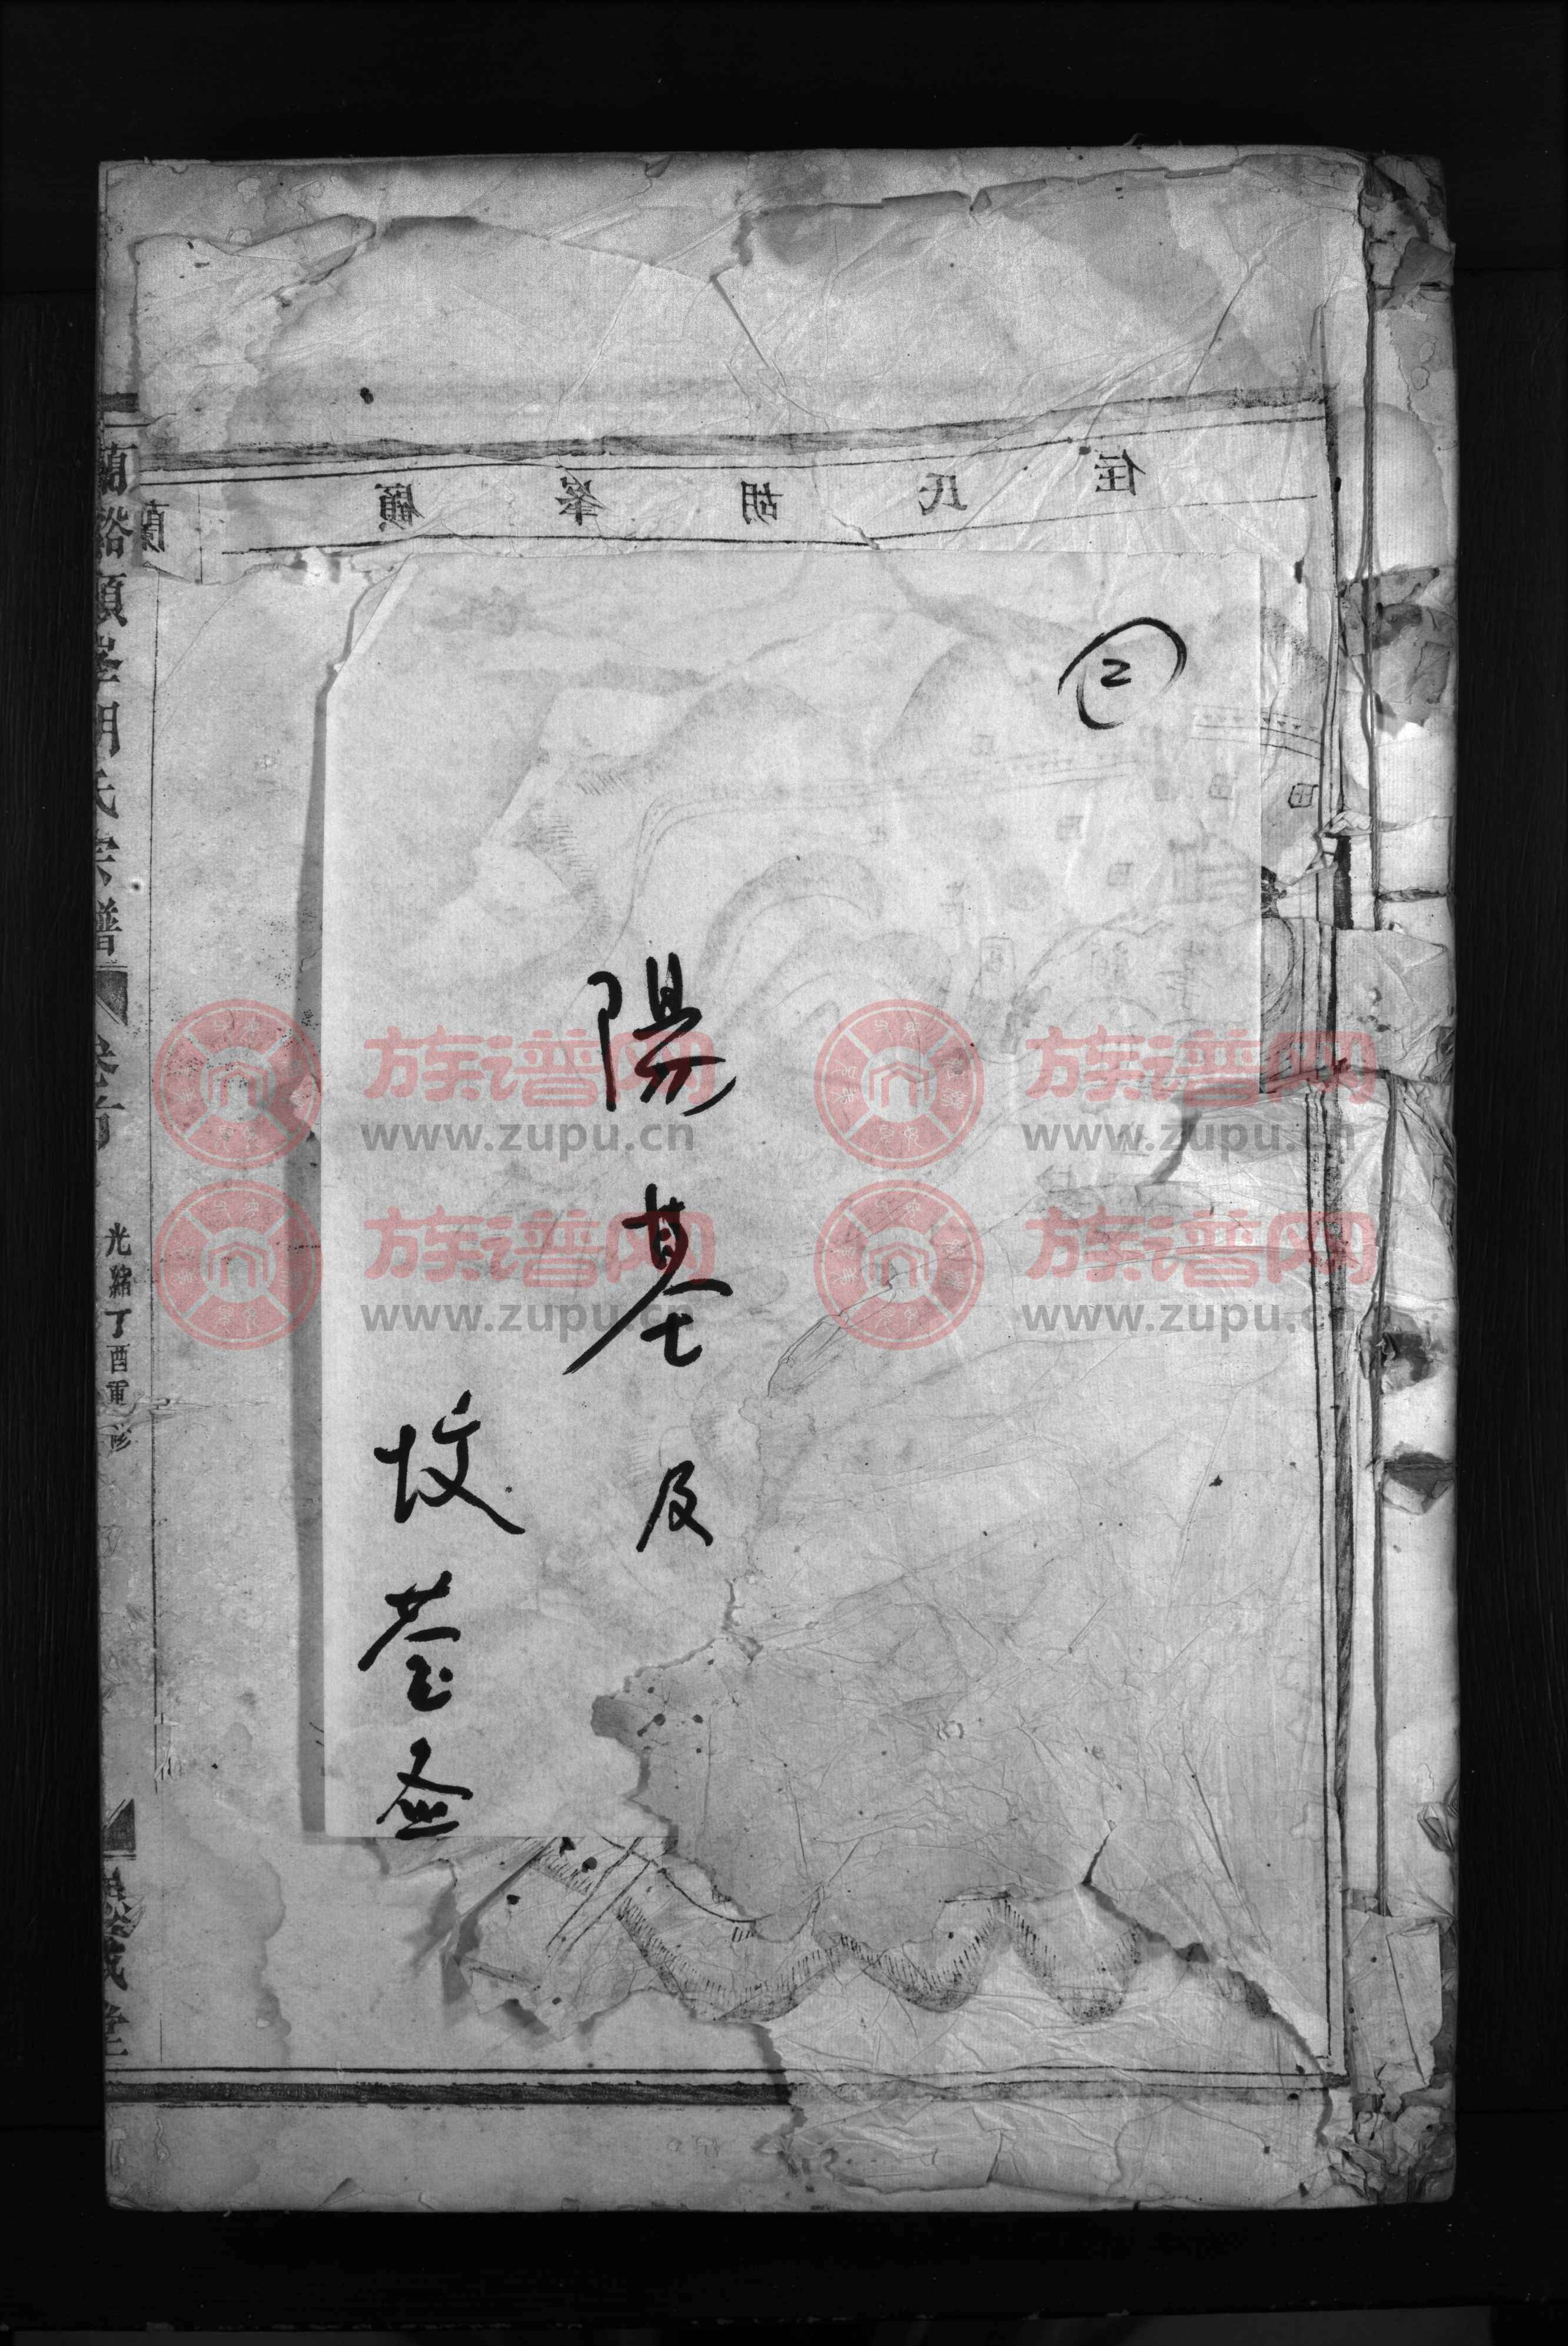 住氏胡峯顧
②
陽基及
坟茔圣
蘭谿顧峯胡氏宗譜
卷首
光緒丁酉重修
蘭
田
族谱网
www.zupu.cn
族谱网
www.zupu.cn
族谱网
www.zupu.cn
族谱网
www.zupu.cn